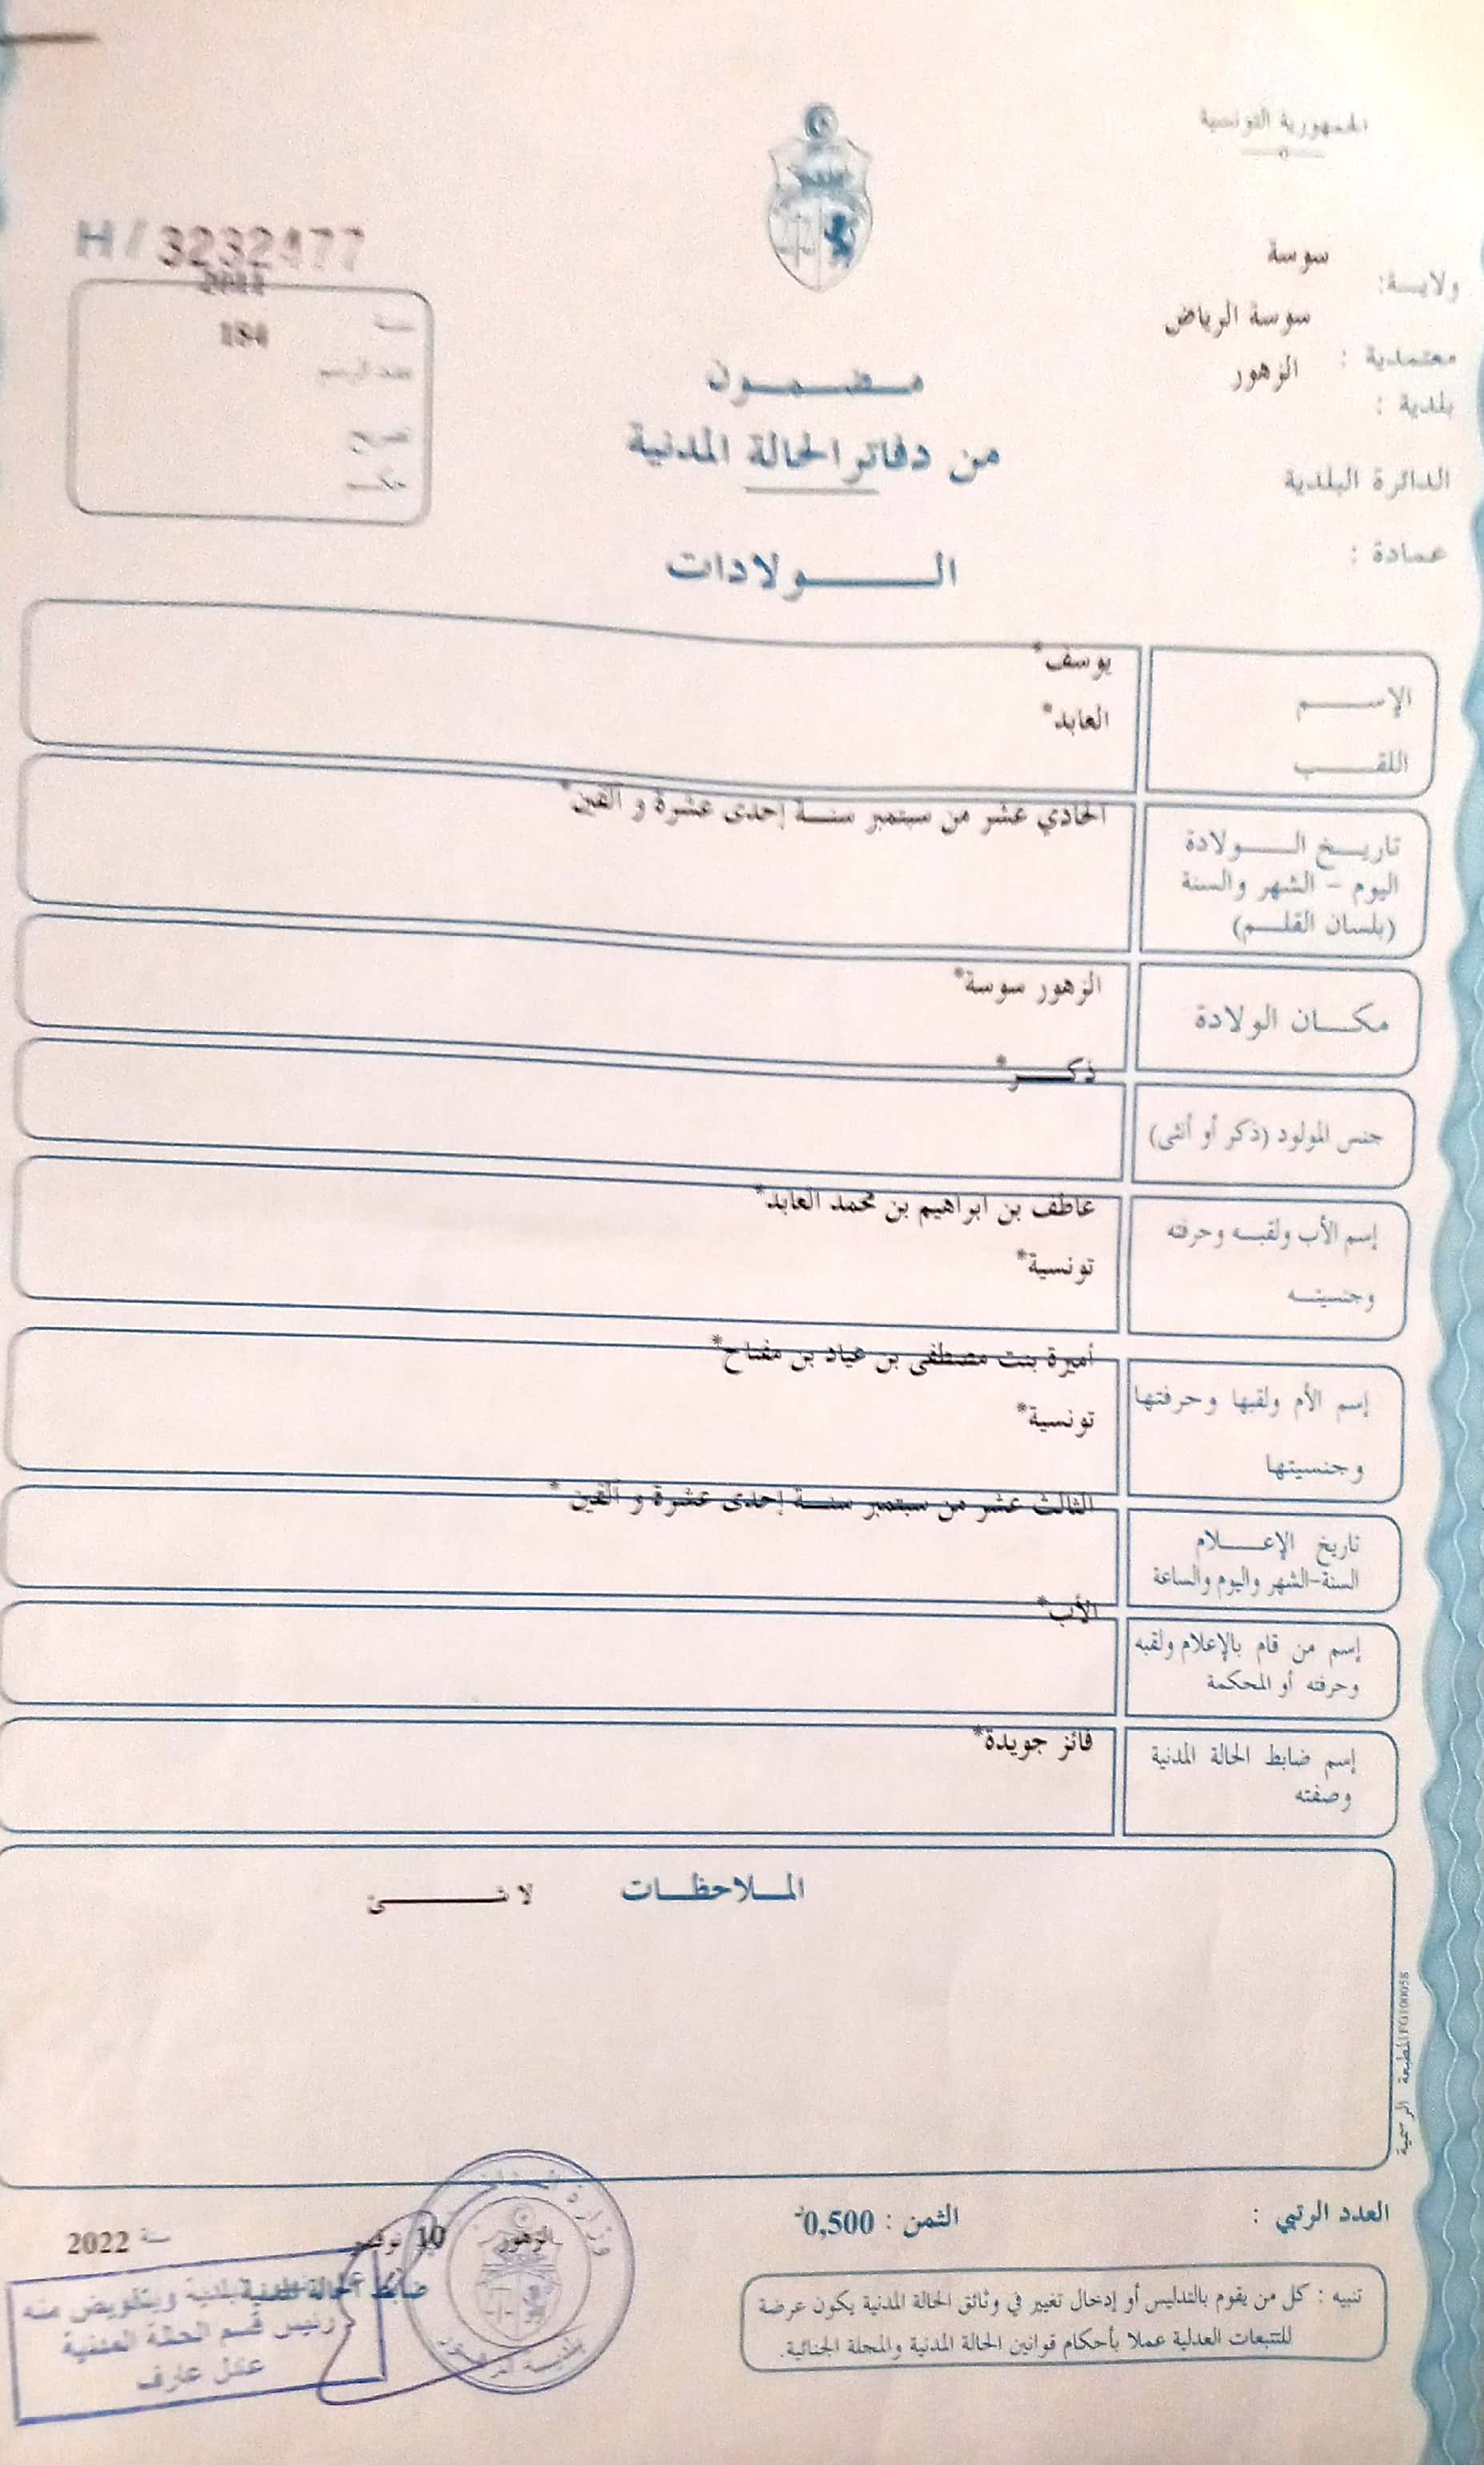 الجمهورية التونسية
ولايـــة: سوسة
معتمدية : سوسة الرياض
بلدية : الزهور
الدائرة البلدية
عمادة :
H/3232477
2011
سنة
184
عدد الرسم
تصريح
حكـــم
مـضـمـــون
من دفاتر الحالة المدنية
الـــــولادات
الإســـــم يوسف*
اللقـــــب العابد*
تاريـــخ الـــــولادة الحادي عشر من سبتمبر سنـــة إحدى عشرة و ألفين*
اليوم - الشهر والسنة
(بلسان القلـــم)
مكـــان الولادة الزهور سوسة*
جنس المولود (ذكر أو أنثى) ذكـــــر*
إسم الأب ولقبـــه وحرفته عاطف بن ابراهيم بن محمد العابد*
وجنسيتـــه تونسية*
إسم الأم ولقبها وحرفتها أميرة بنت مصطفى بن عياد بن مفتاح*
وجنسيتها تونسية*
تاريخ الإعـــــلام الثالث عشر من سبتمبر سنـــة إحدى عشرة و ألفين *
السنة-الشهر واليوم والساعة
إسم من قام بالإعلام ولقبه الأب*
وحرفته أو المحكمة
إسم ضابط الحالة المدنية فائز جويدة*
وصفته
المـــلاحظـــات لا شـــــــئ
المطبعة الرسمية FG100058
العدد الرتبي :
الثمن : 0,500د
الزهور 10 نوفمبر سنة 2022
ضابط الحالة المدنية
وبتفويض منه
رئيس قسم الحالة المدنية
عارف
وزارة
بلدية
تنبيه : كل من يقوم بالتدليس أو إدخال تغيير في وثائق الحالة المدنية يكون عرضة
للتتبعات العدلية عملا بأحكام قوانين الحالة المدنية والمجلة الجنائية.